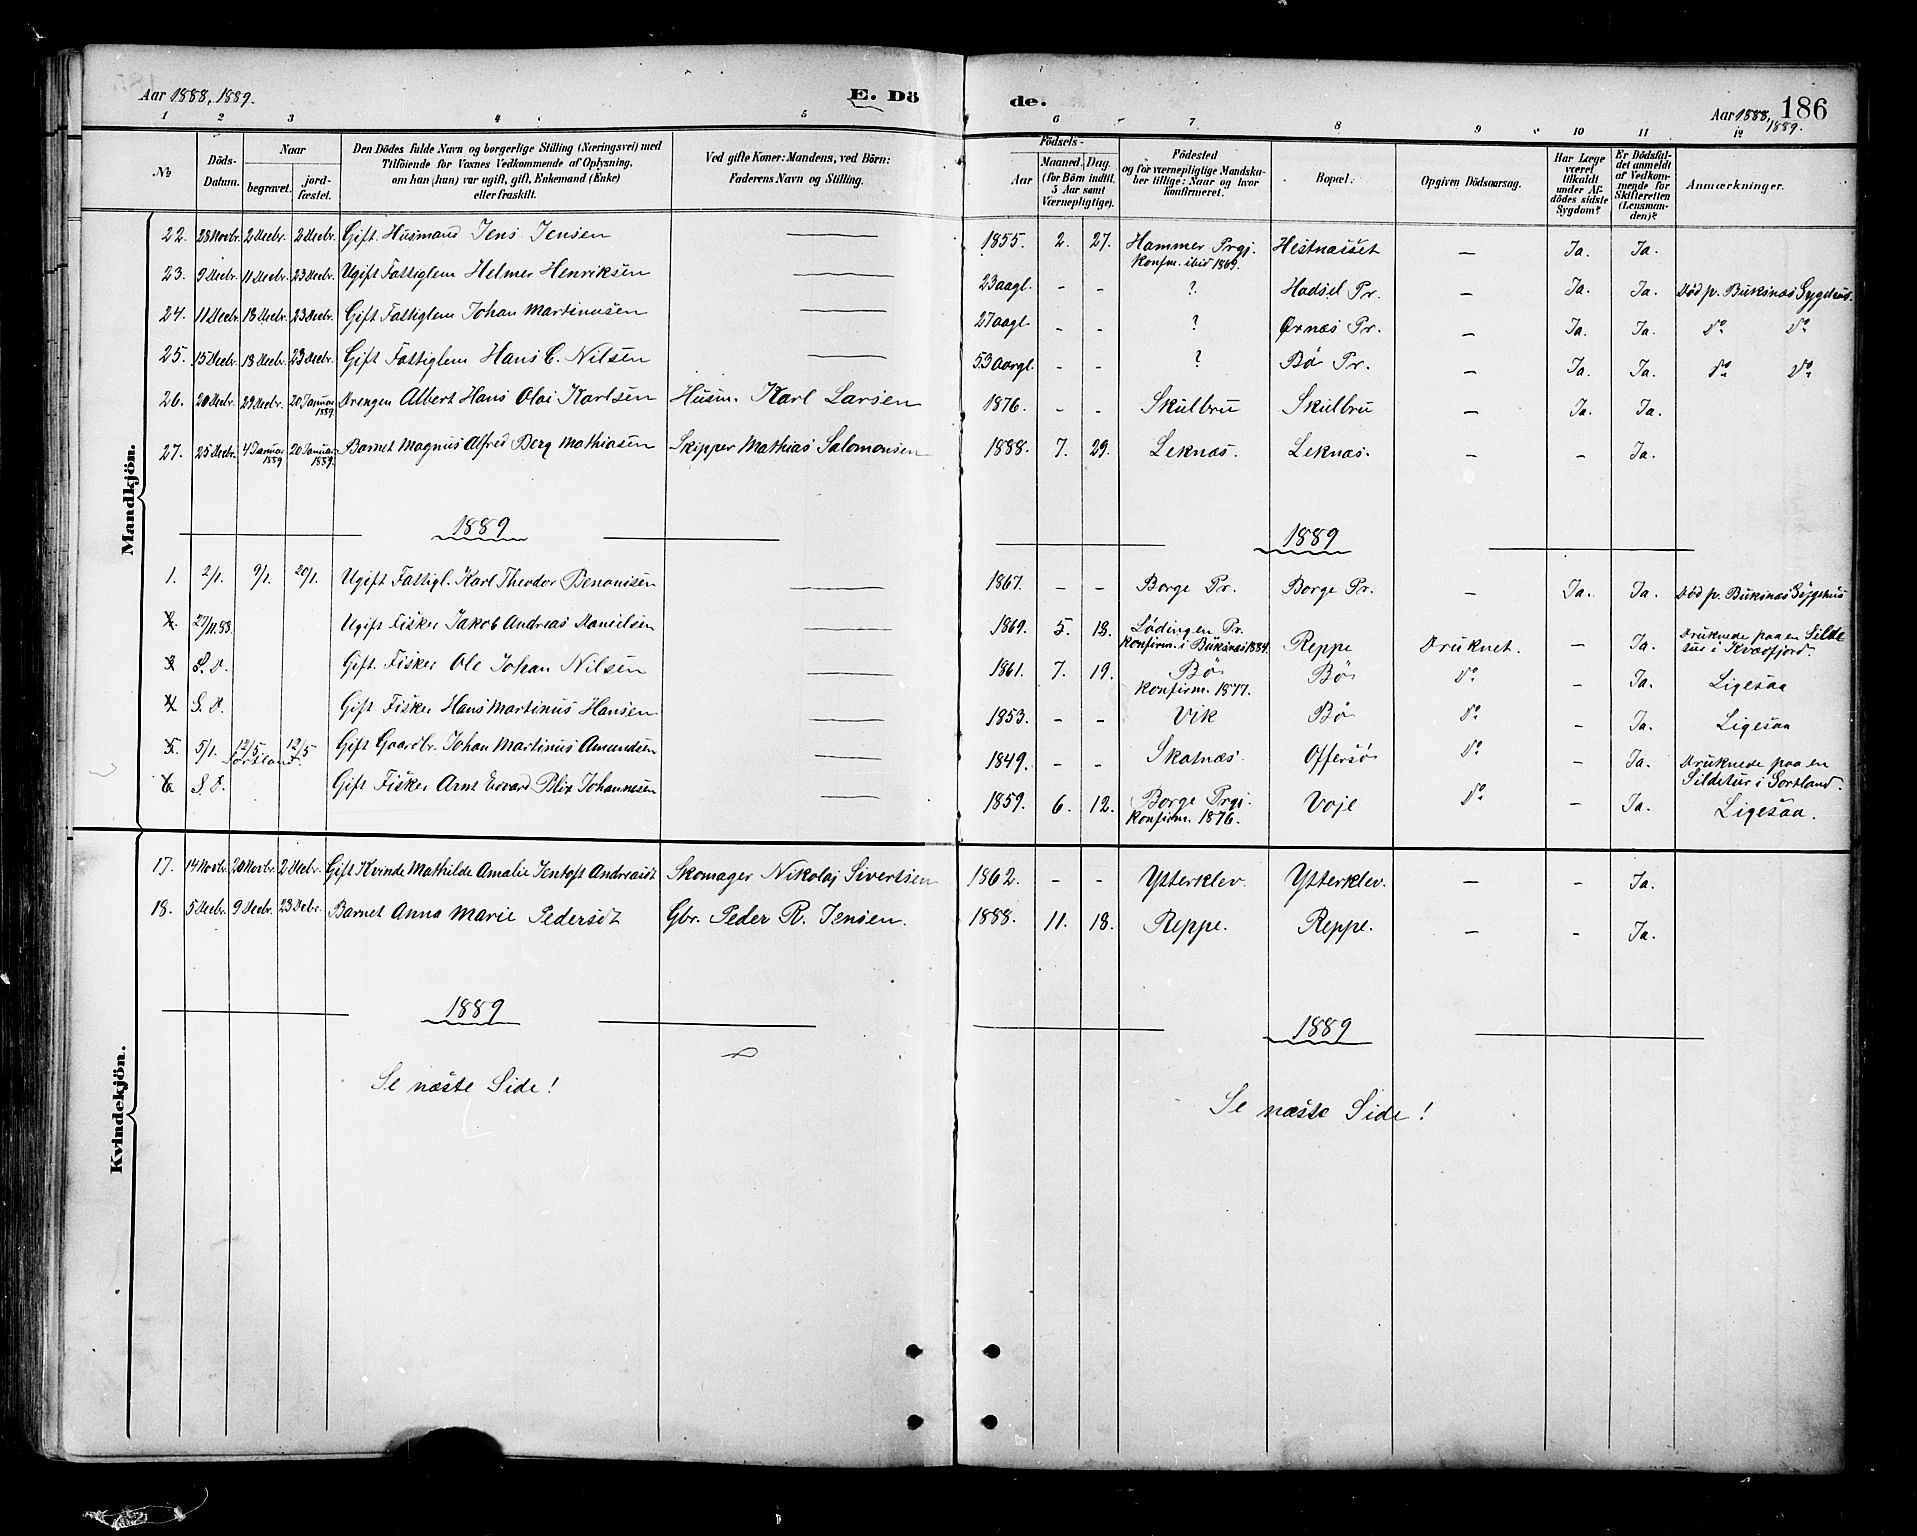 Aar 1888, 1889.
E. Dö
de.
Aar 1888, 1889.
186
1 2 3 4 5 6 7 8 9 10 11 12
№
Döds-Datum.
Naar
begravet.
jordfæstet.
Den Dödes fulde Navn og borgerlige Stilling (Næringsvei) med
Tilföiende for Voxnes Vedkommende af Oplysning,
om han (hun) var ugift, gift, Enkemand (Enke)
eller fraskilt.
Ved gifte Koner: Mandens, ved Börn:
Faderens Navn og Stilling.
Födsels-
Aar
Maaned. Dag.
(for Börn indtil
5 Aar samt
Værnepligtige).
Födested
og for værnepligtige Mandskaber tillige: Naar og hvor
konfirmeret.
Bopæl.
Opgiven Dödsaarsag.
Har Læge
været
tilkaldt
under Afdödes sidste
Sygdom?
Er Dödsfaldet anmeldt
af Vedkommende for
Skifteretten
(Lensmanden)?
Anmærkninger.
Mandkjön.
22. 28 Novbr. 2 Decbr. 2 Decbr. Gift Husmand Jens Jensen — 1855. 2. 27. Hammer Prgj. Konfm. ibid 1869. Hestnæsset — Ja. Ja.
23. 9 Decbr. 11 Decbr. 23 Decbr. Ugift Fattiglem Helmer Henriksen — 23 aagl. - - ? Hadsel Pr. — Ja. Ja. Död p. Buksnæs Sygehus.
24. 11 Decbr. 18 Decbr. 23 Decbr. Gift Fattiglem Johan Martinusen — 27 aagl. - - ? Ørnæs Pr. — Ja. Ja. Do Do
25. 15 Decbr. 18 Decbr. 23 Decbr. Gift Fattiglem Hans C. Nilsen — 53 Aargl. - - ? Bø Pr. — Ja. Ja. Do Do
26. 20 Decbr. 29 Decbr. 20 Januar 1889 Drengen Albert Hans Olai Karlsen Husm. Karl Larsen 1876. - - Skulbru Skulbru — Ja. Ja.
27. 25 Decbr. 4 Januar 1889 20 Januar 1889. Barnet Magnus Alfred Berg Mathiasen Skipper Mathias Salomonsen 1888. 7. 29. Leknæs. Leknæs. — - Ja.
1889 1889
1. 2/1. 9/1. 20/1. Ugift Fattigl. Karl Theodor Benonisen — 1867. - - Borge Pr. Borge Pr. — Ja. Ja. Död p. Buksnæs Sygehus
2. 27/11. 88. Ugift Fisker Jakob Andreas Danielsen — 1869. 5. 18. Lødingen Pr. Konfirm. i Buksnæs 1884. Reppe Druknet. - Ja. Druknede paa en Sildetur i Kvæfjord.
3. S. D. Gift Fisker Ole Johan Nilsen — 1861. 7. 19. Bø Konfirm. 1877. Bø Do - Ja. Ligesaa
4. S. D. Gift Fisker Hans Martinus Hansen — 1853. - - Vik Bø Do - Ja. Ligesaa
5. 5/1. 12/5 12/5 Sortland. Gift Gaardbr. Johan Martinus Amundsen — 1849. - - Skatnæs. Offersø Do - Ja. Druknede paa en Sildetur i Sortland.
6. S. D. Gift Fisker Arnt Edvard Blix Johannesen — 1859. 6. 12. Borge Prgj. Konfirm. 1876. Voje Do - Ja. Ligesaa.
Kvindekjön.
17. 14 Novbr. 20 Novbr. 2 Decbr. Gift Kvinde Mathilde Amalie Jentoft Andreasdt Skomager Nikolaj Sivertsen 1862. - - Ytterklev. Ytterklev. — - Ja.
18. 5 Decbr. 9 Decbr. 23 Decbr. Barnet Anna Marie Pedersdt Gbr. Peder R. Jensen. 1888. 11. 18. Reppe. Reppe. — - Ja.
1889 1889
Se næste Side! Se næste Side!